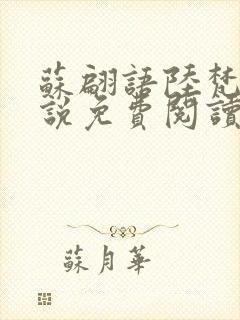 蘇翩語陸梵
說免費閱讀
蘇月華